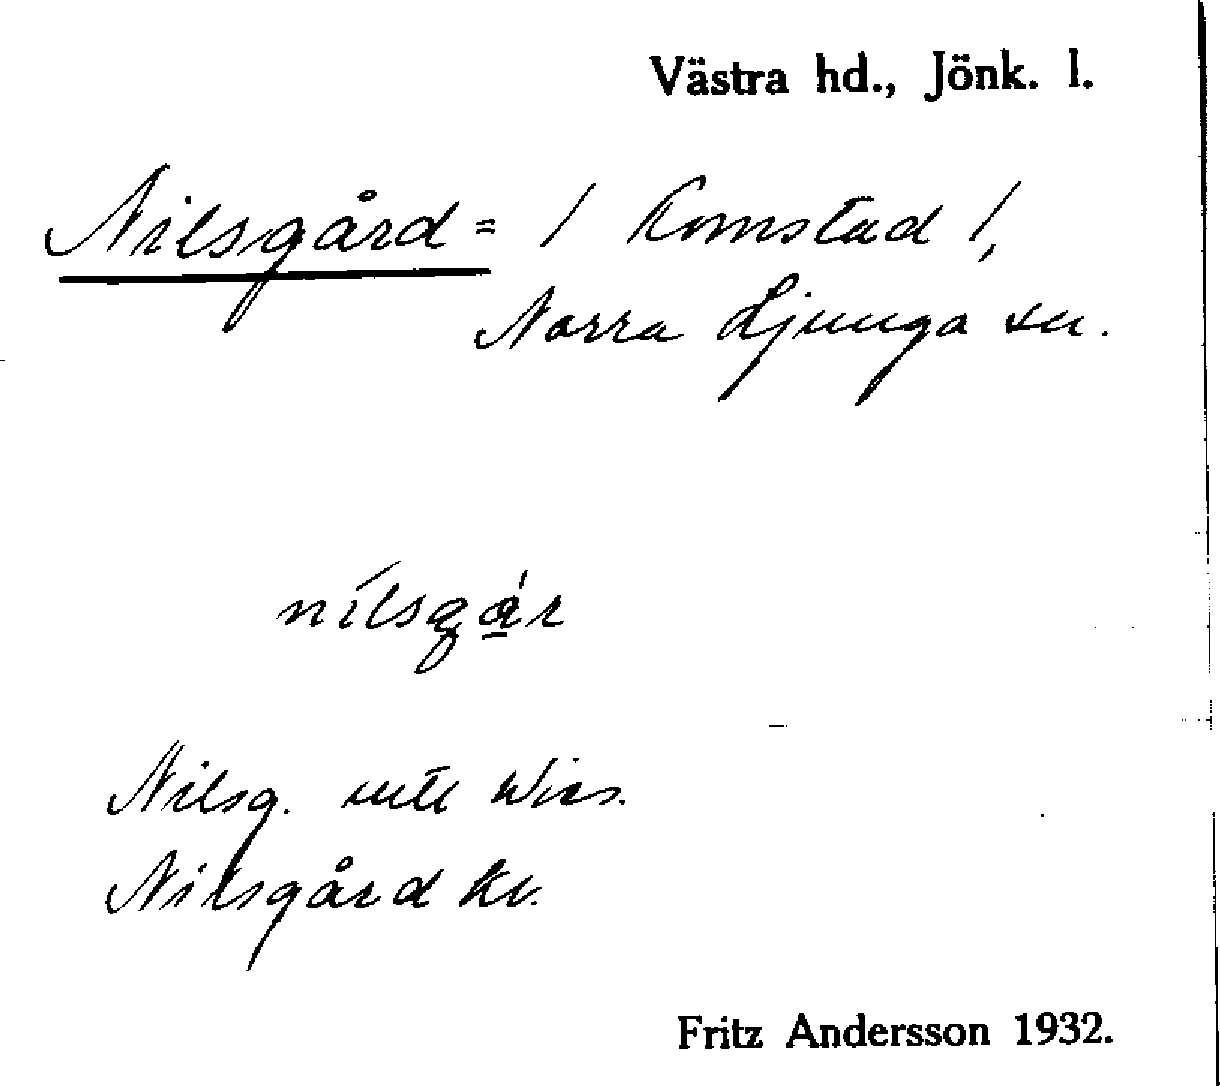 Västra hd., Jönk. l.
Nilsgård = / Komstad /,
Norra Ljunga sn.
nílsgår
Nilsg.
Nilsgård kv.
Fritz Andersson 1932.